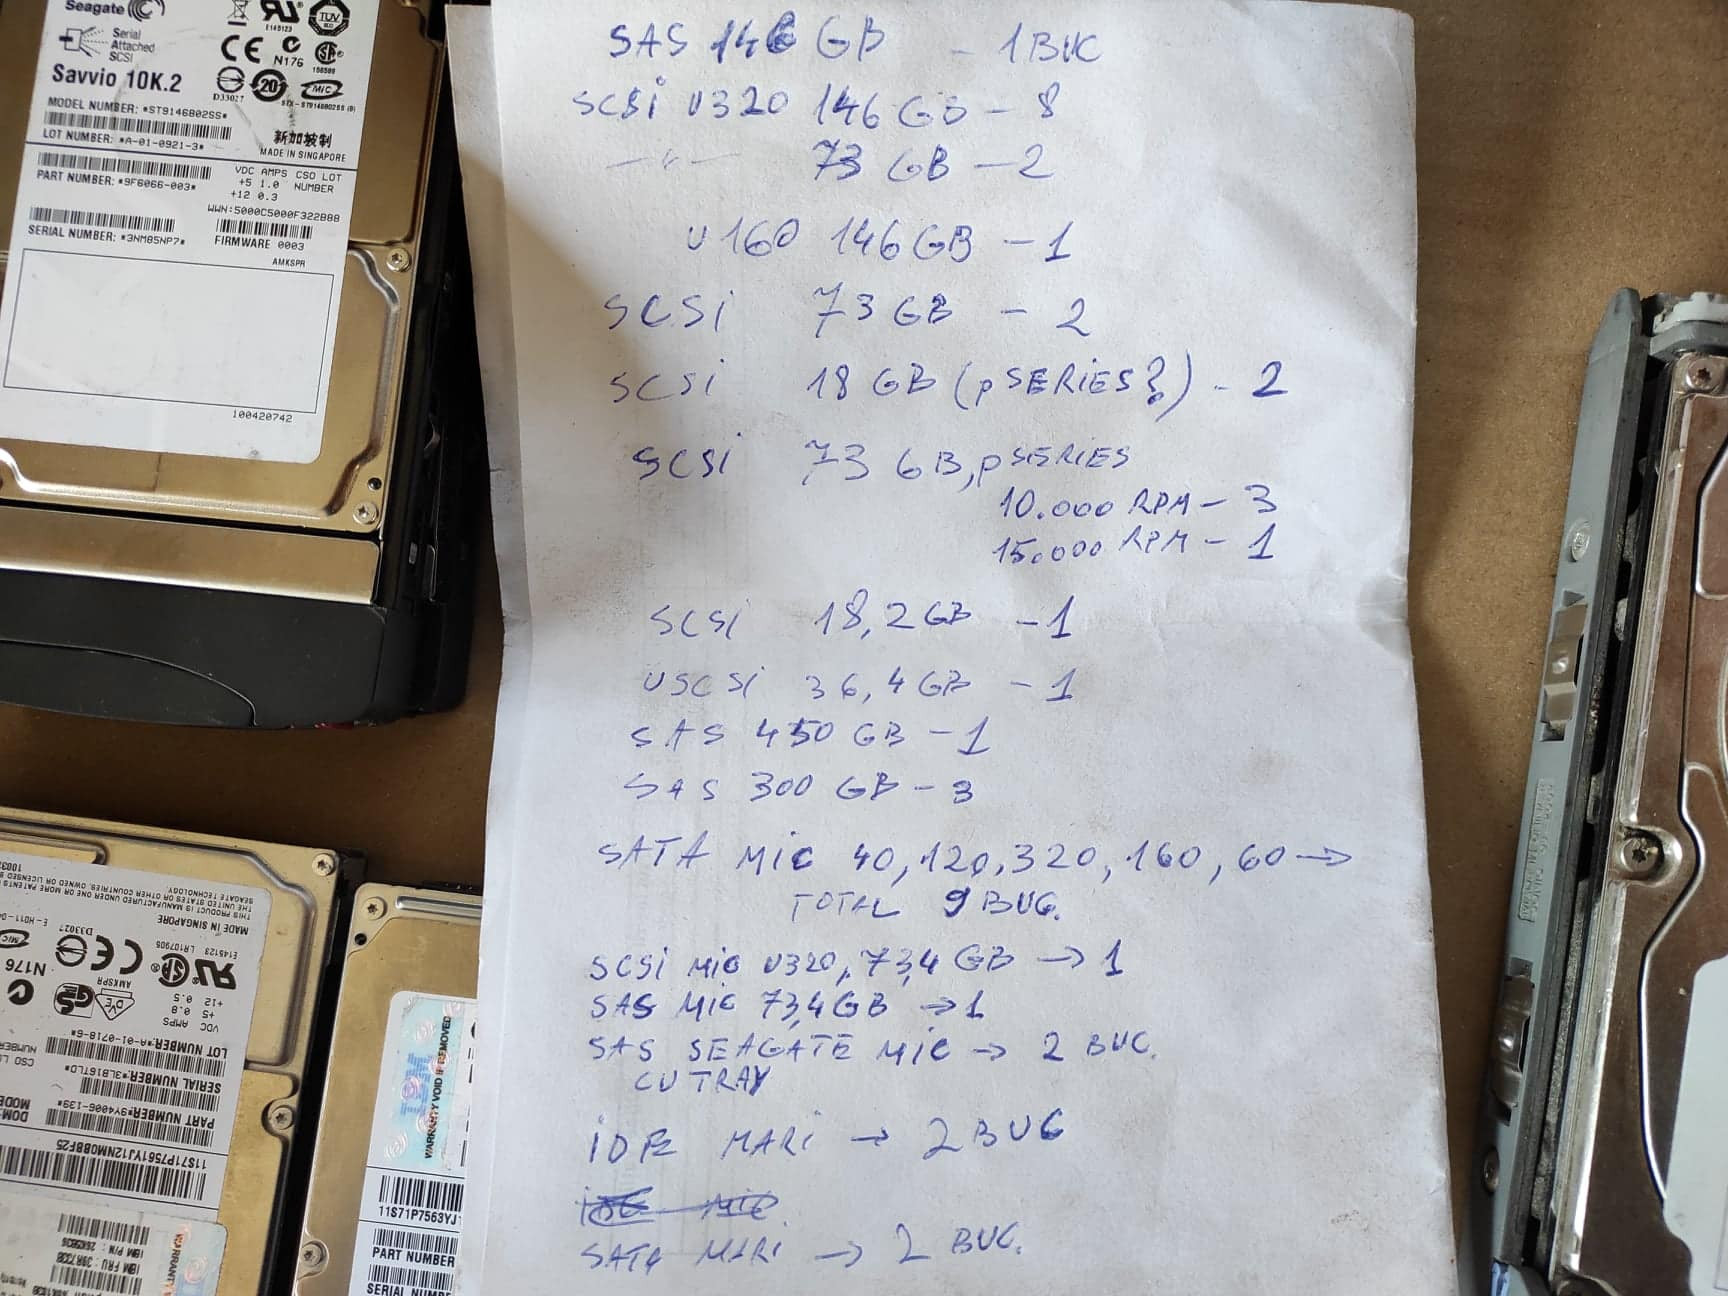 Seagate
Serial
Attached
SCSI
Savvio 10K.2
MODEL NUMBER: *ST9146802SS*
LOT NUMBER: *A-01-0921-3*
PART NUMBER: *9F6066-003*
SERIAL NUMBER: *3NM85NP7*
E145123
TUV
N176
D33027
20
MIC
新加坡制
MADE IN SINGAPORE
VDC AMPS CSO LOT
+5 1.0 NUMBER
+12 0.3
WWN:5000C5000F322B88
FIRMWARE 0003
AMKSPR
100420742
SAS 146 GB - 1 BUC
SCSI U320 146 GB - 8
—"— 73 GB - 2
U160 146 GB - 1
SCSI 73 GB - 2
SCSI 18 GB (pSERIES?) - 2
SCSI 73 GB, pSERIES
10.000 RPM - 3
15.000 RPM - 1
SCSI 18,2 GB - 1
USCSI 36,4 GB - 1
SAS 450 GB - 1
SAS 300 GB - 3
SATA MIC 40, 120, 320, 160, 60 →
TOTAL 9 BUC.
SCSI MIC U320, 73,4 GB → 1
SAS MIC 73,4 GB → 1
SAS SEAGATE MIC → 2 BUC.
CU TRAY
IDE MARI → 2 BUC
IDE MIC
SATA MARI → 2 BUC.
SEAGATE TECHNOLOGY
MADE IN SINGAPORE
E145123 LR107905
D33027
N176
AMKSPR
VDC AMPS
+5 0.8
+12 0.5
LOT NUMBER: *A-01-0718-6*
SERIAL NUMBER: *3LB16TLD*
PART NUMBER: *9Y4006-139*
11S71P7561YJ12NM0BBF25
IBM
WARRANTY VOID IF REMOVED
11S71P7563YJ1
PART NUMBER
SERIAL NUMB